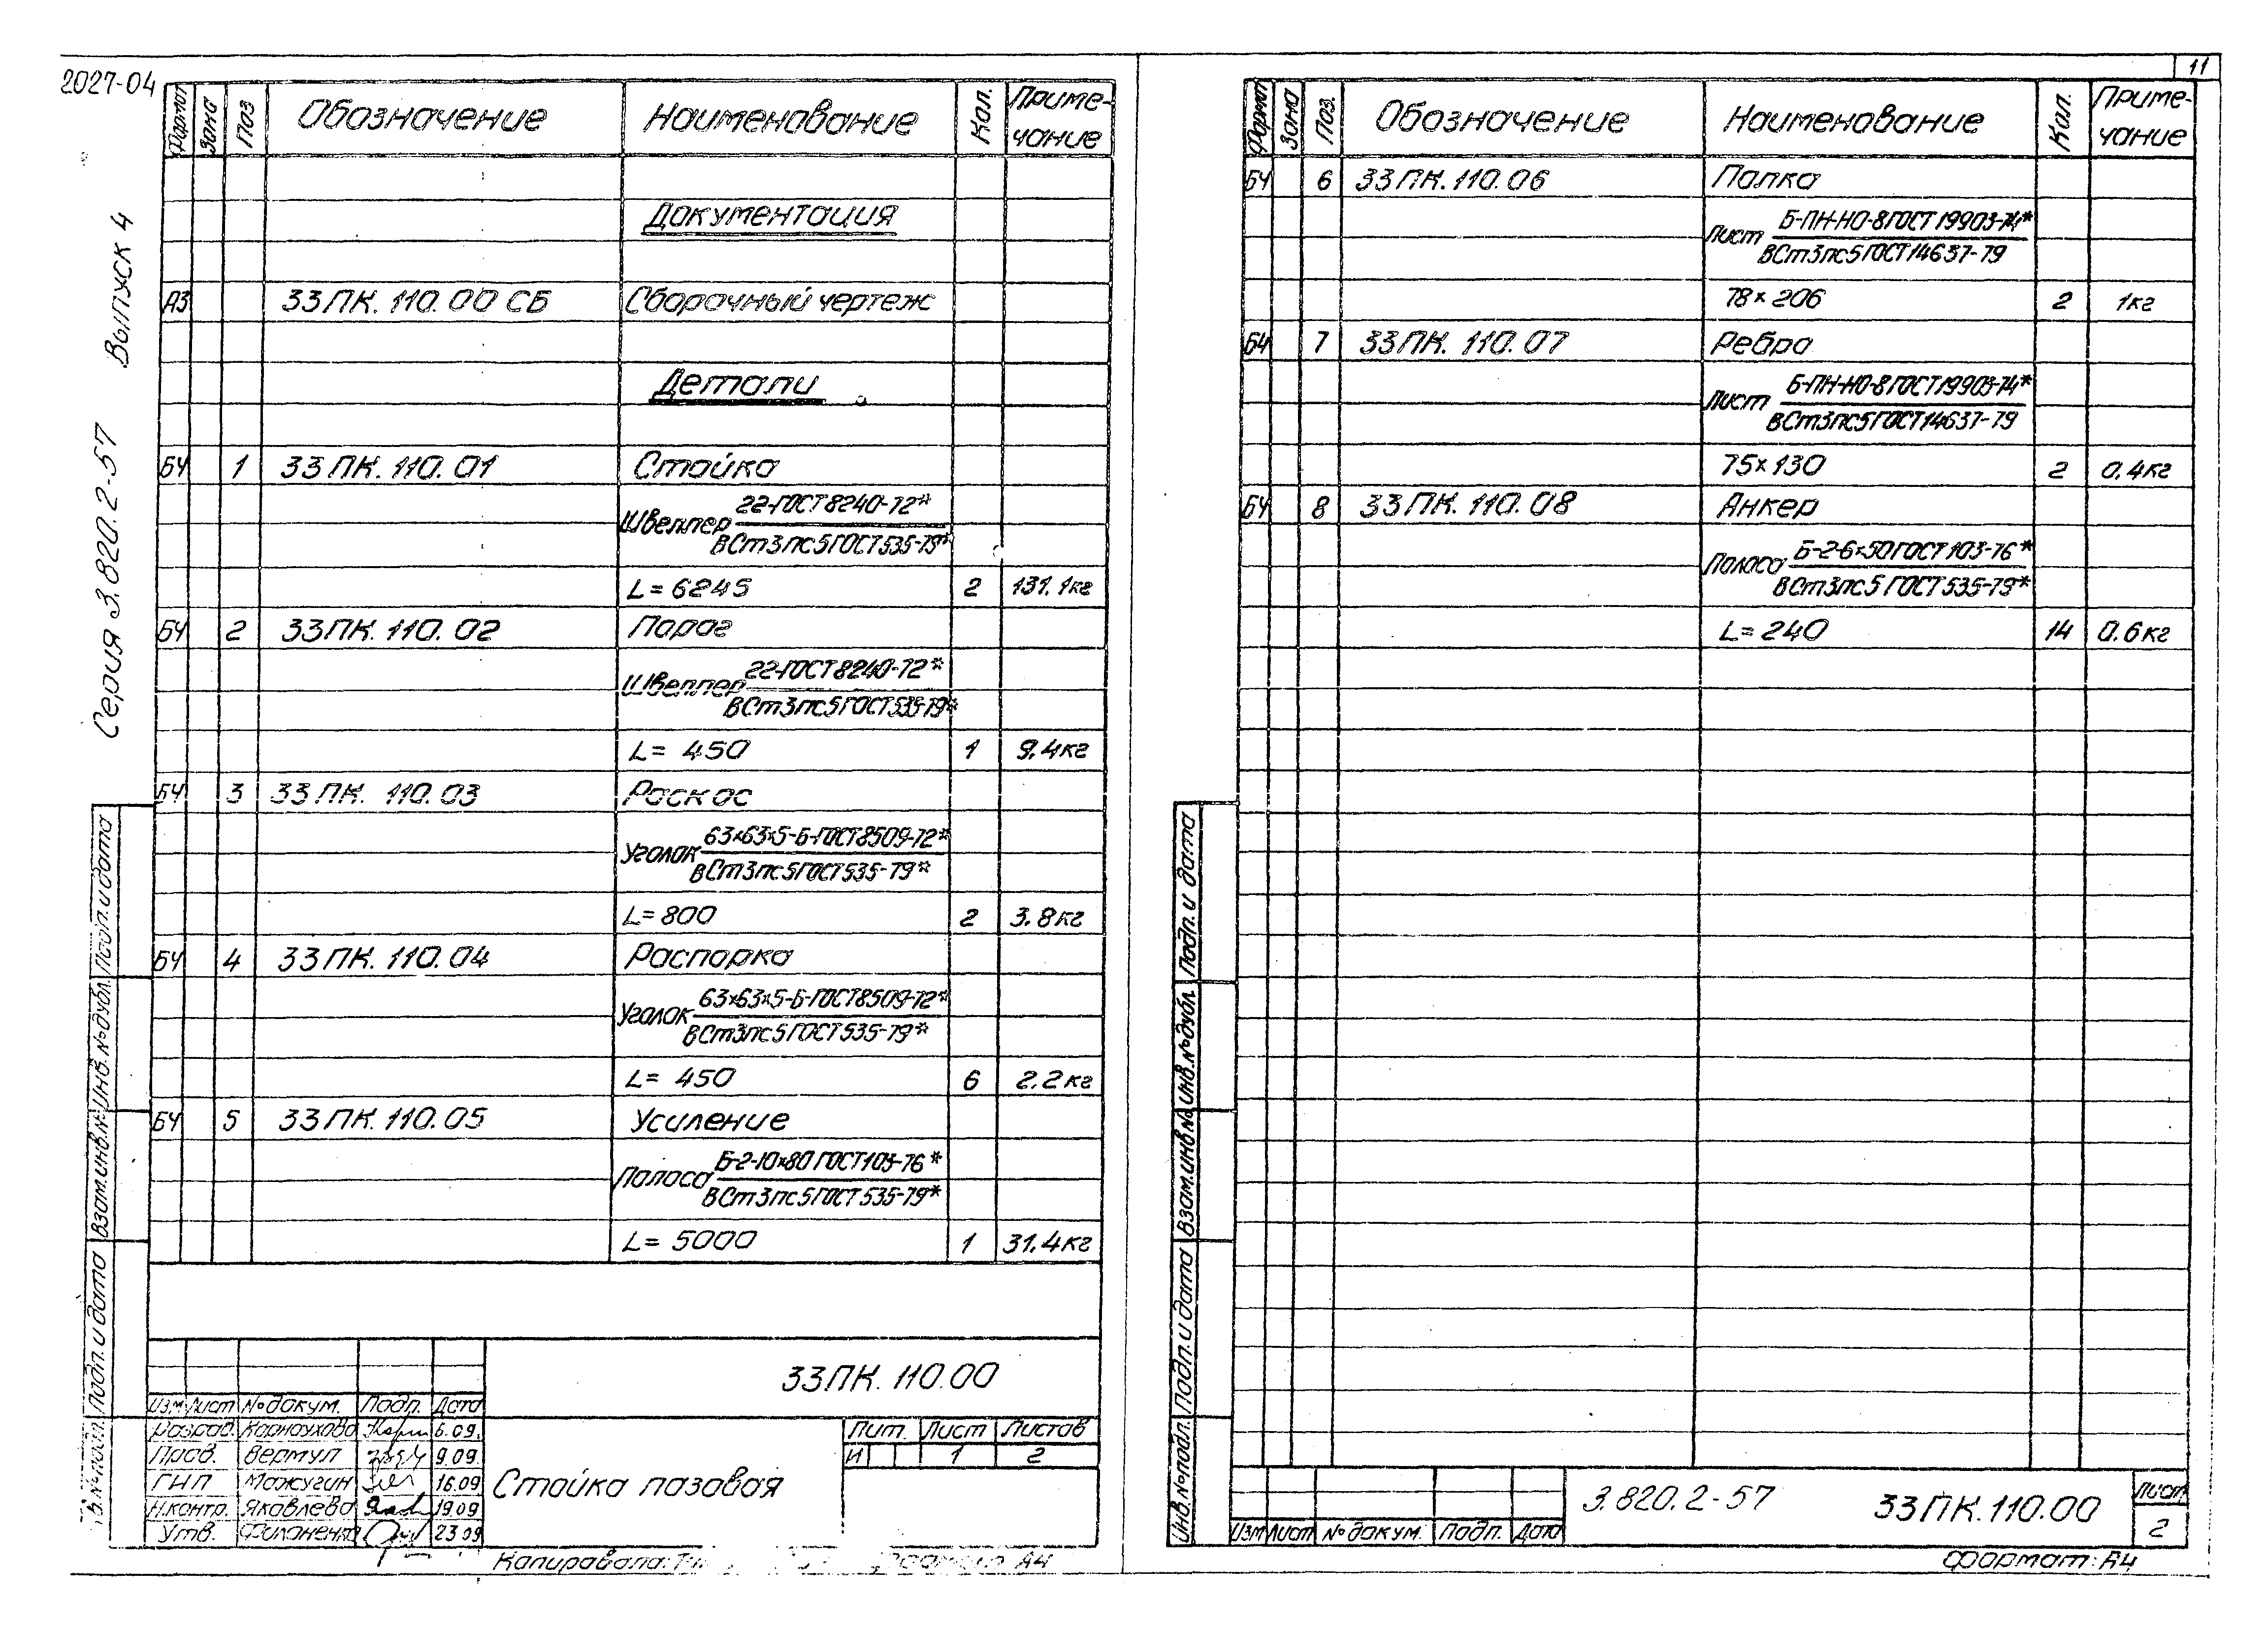 2027-04
Серия 3.820.2-57 Выпуск 4
Формат Зона Поз Обозначение Наименование Кол. Приме-чание
Документация
А3 33ПК.110.00 СБ Сборочный чертеж
Детали
БЧ 1 33ПК.110.01 Стойка
22-ГОСТ 8240-72*
Швеллер
ВСт3пс5 ГОСТ 535-79*
L=6245 2 131.1кг
БЧ 2 33ПК.110.02 Порог
22-ГОСТ 8240-72*
Швеллер
ВСт3пс5 ГОСТ 535-79*
L= 450 1 9.4кг
БЧ 3 33ПК. 110.03 Раскос
63х63х5-Б-ГОСТ 8509-72*
Уголок
ВСт3пс5 ГОСТ 535-79*
L=800 2 3.8кг
БЧ 4 33ПК.110.04 Распорка
63х63х5-Б-ГОСТ 8509-72*
Уголок
ВСт3пс5 ГОСТ 535-79*
L= 450 6 2.2кг
БЧ 5 33ПК.110.05 Усиление
Б-2-10х80 ГОСТ 103-76*
Полоса
ВСт3пс5 ГОСТ 535-79*
L= 5000 1 31.4кг
Подп. и дата
Инв.№дубл.
Взам.инв.№
Подп. и дата
33ПК.110.00
Изм Лист №докум. Подп. Дата
Разраб. Карнаухова 6.09.
Пров. Вермул 9.09.
ГИП Мажугин 16.09
Н.контр. Яковлева 19.09
Утв. Филоненко 23.09
Стойка пазовая
Лит. Лист Листов
И 1 2
Копировала:
А4
11
Формат Зона Поз. Обозначение Наименование Кол. Приме-чание
БЧ 6 33ПК.110.06 Полка
Б-ПН-НО-8 ГОСТ 19903-74*
Лист
ВСт3пс5 ГОСТ 14637-79
78х206 2 1кг
БЧ 7 33ПК.110.07 Ребро
Б-ПН-НО-8 ГОСТ 19903-74*
Лист
ВСт3пс5 ГОСТ 14637-79
75х130 2 0.4кг
БЧ 8 33ПК.110.08 Анкер
Б-2-6х50 ГОСТ 103-76*
Полоса
ВСт3пс5 ГОСТ 535-79*
L=240 14 0.6кг
Подп. и дата
Инв.№дубл.
Взам.инв.№
Подп. и дата
Инв.№подл.
Изм Лист №докум. Подп. Дата
3.820.2-57 33ПК.110.00
Лист
2
Формат: А4